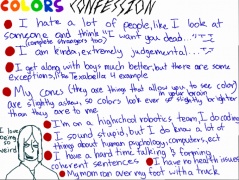 COLORS CONFESSION
I hate a lot of people, like I look at
someone and think "I want you dead..."
(complete strangers too)
I am kinda, extremely judgemental...
I get along with boys much better, but there are some
exceptions, like Texabella 4 example
My cones (they are things that allow you to see color)
in your eyes
are slightly askew, so colors look ever so slightly brighter
than they are to me.
I'm on a highschool robotics team, I do coding
I sound stupid, but I do know a lot of
thing about human psychology, computers, ect
I have a hard time talking & forming
coherent sentences
I have no health issues
My mom ran over my foot with a truck
I love
being
so
weird